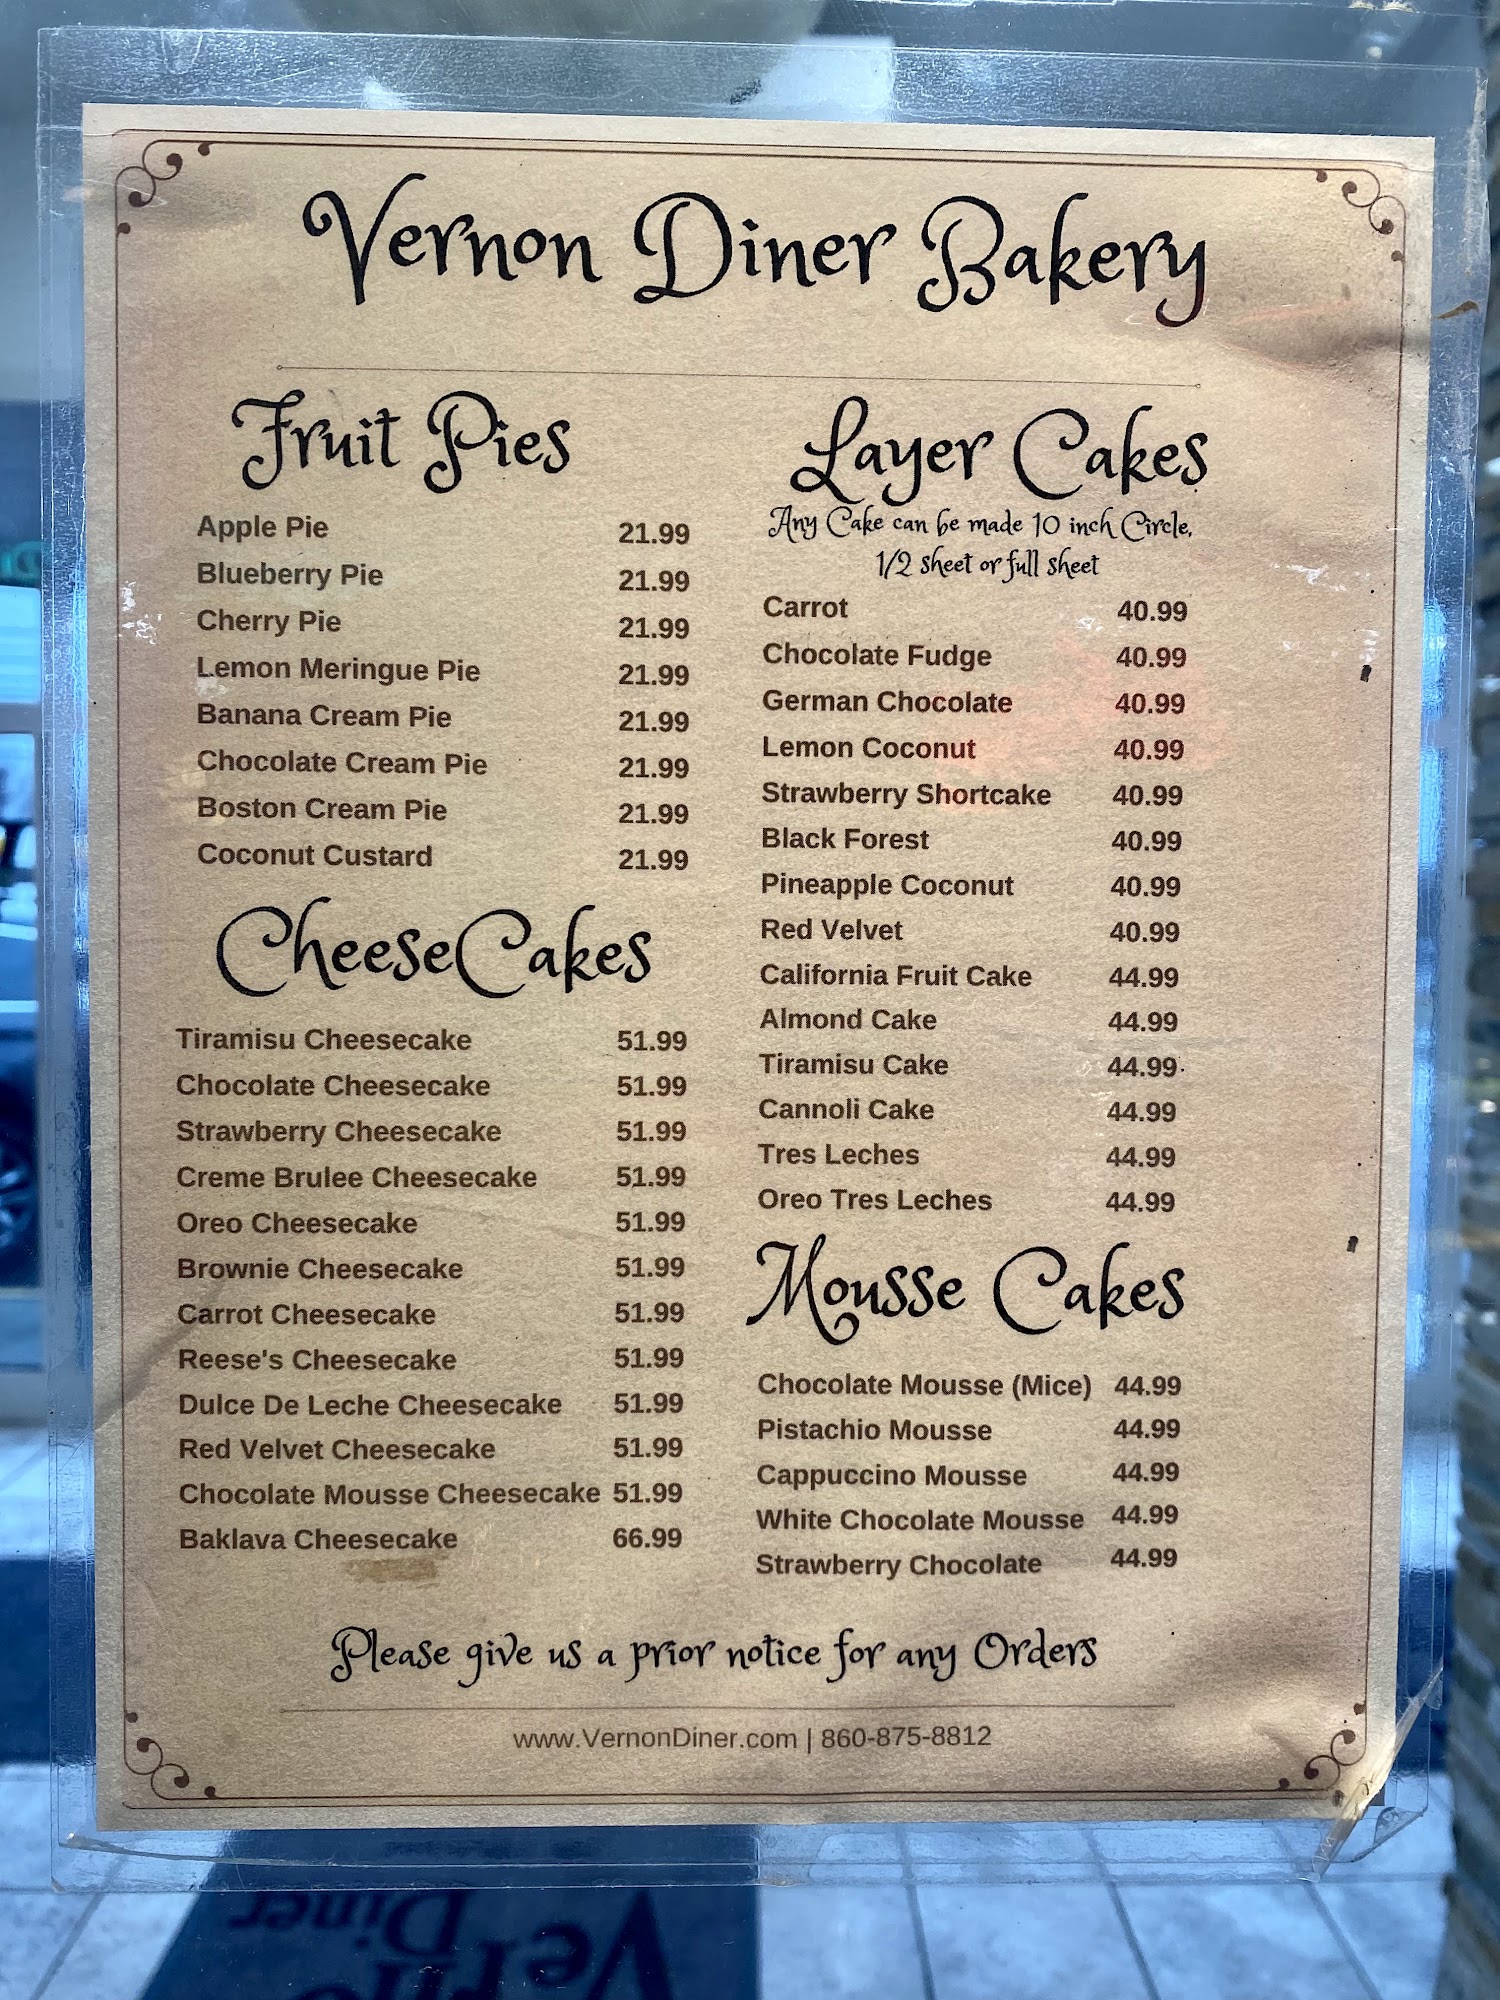 Vernon Diner Bakery
Fruit Pies
Apple Pie 21.99
Blueberry Pie 21.99
Cherry Pie 21.99
Lemon Meringue Pie 21.99
Banana Cream Pie 21.99
Chocolate Cream Pie 21.99
Boston Cream Pie 21.99
Coconut Custard 21.99
CheeseCakes
Tiramisu Cheesecake 51.99
Chocolate Cheesecake 51.99
Strawberry Cheesecake 51.99
Creme Brulee Cheesecake 51.99
Oreo Cheesecake 51.99
Brownie Cheesecake 51.99
Carrot Cheesecake 51.99
Reese's Cheesecake 51.99
Dulce De Leche Cheesecake 51.99
Red Velvet Cheesecake 51.99
Chocolate Mousse Cheesecake 51.99
Baklava Cheesecake 66.99
Layer Cakes
Any Cake can be made 10 inch Circle,
1/2 sheet or full sheet
Carrot 40.99
Chocolate Fudge 40.99
German Chocolate 40.99
Lemon Coconut 40.99
Strawberry Shortcake 40.99
Black Forest 40.99
Pineapple Coconut 40.99
Red Velvet 40.99
California Fruit Cake 44.99
Almond Cake 44.99
Tiramisu Cake 44.99
Cannoli Cake 44.99
Tres Leches 44.99
Oreo Tres Leches 44.99
Mousse Cakes
Chocolate Mousse (Mice) 44.99
Pistachio Mousse 44.99
Cappuccino Mousse 44.99
White Chocolate Mousse 44.99
Strawberry Chocolate 44.99
Please give us a prior notice for any Orders
www.VernonDiner.com | 860-875-8812
Diner